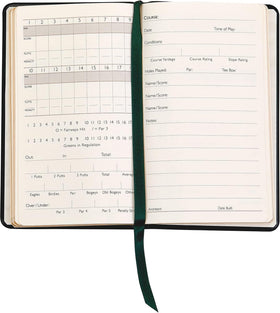 1 2 3 4 5 6 7 8
PAR
SCORE
PUTTS
PENALTY
10 11 12 13 14 15 16 17
PAR
SCORE
PUTTS
PENALTY
1 2 3 4 5 6 7 8 9 10 11 12 13 14
O = Fairways Hit / = Par 3
1 2 3 4 5 6 7 8 9 10 11 12 13 14
Greens in Regulation
Out In Total
1 Putts 2 Putts 3 Putts Total
Eagles Birdies Par Bogeys Dbl. Bogeys Other
Over / Under:
Par 3 Par 4 Par 5 Penalty
Course:
Date Time of Play
Conditions
Course Yardage Course Rating Slope Rating
Holes Played Par: Tee Box:
Name/Score:
Name/Score:
Name/Score:
Notes:
Architect: Date Built: